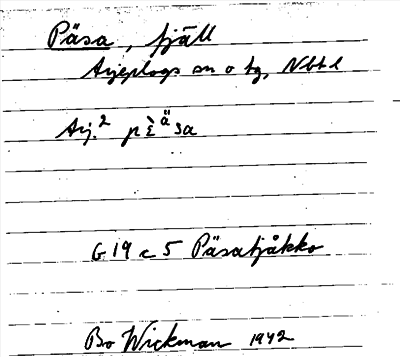 Päsa, fjäll
Arjeplogs sn o tg, Nbt l
Arj.² pɛ̀ äsa
G 19 c 5 Päsatjåkko
Bo Wickman 1942